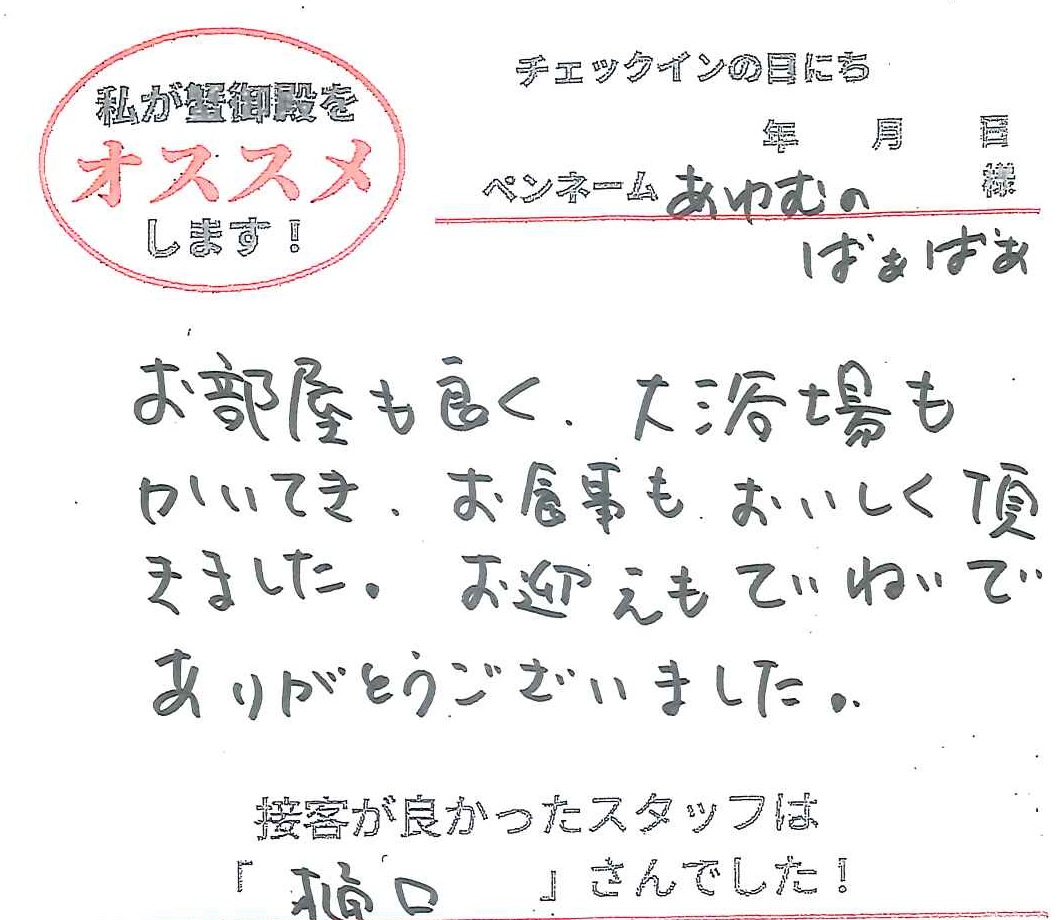 私が蟹御殿を
オススメ
します！
チェックインの日にち
年 月 日
ペンネーム あゆむの 様
ばぁばぁ
お部屋も良く、大浴場も
かいてき、お食事もおいしく頂
きました。お迎えもていねいで
ありがとうございました。
接客が良かったスタッフは
「 樋口 」さんでした！